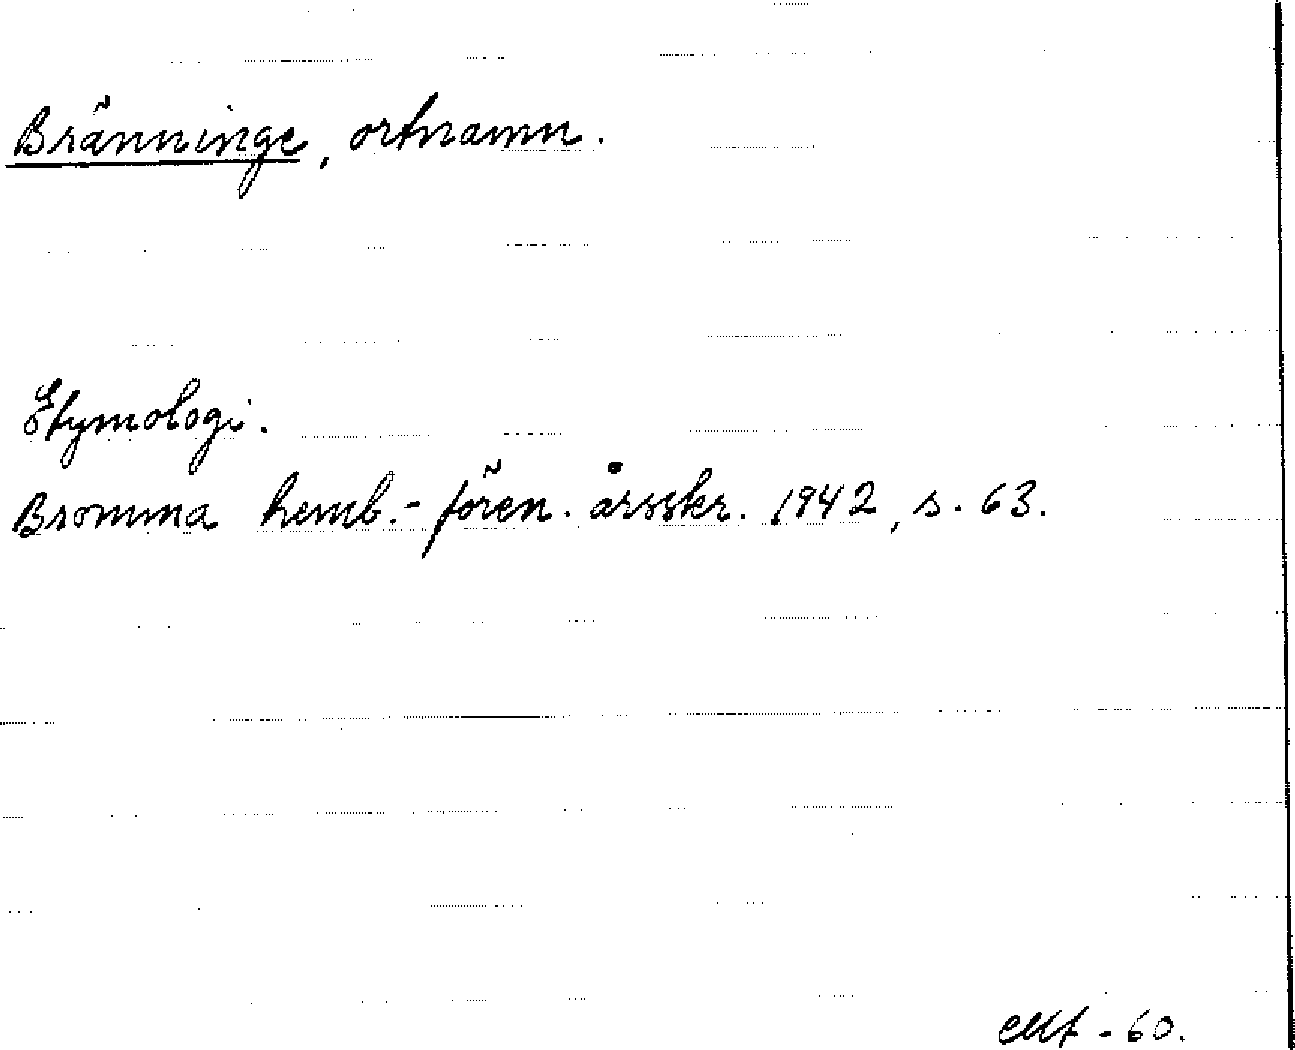 Bränninge, ortnamn.
Etymologi.
Bromma hemb.-fören. årsskr. 1942, s. 63.
-60.